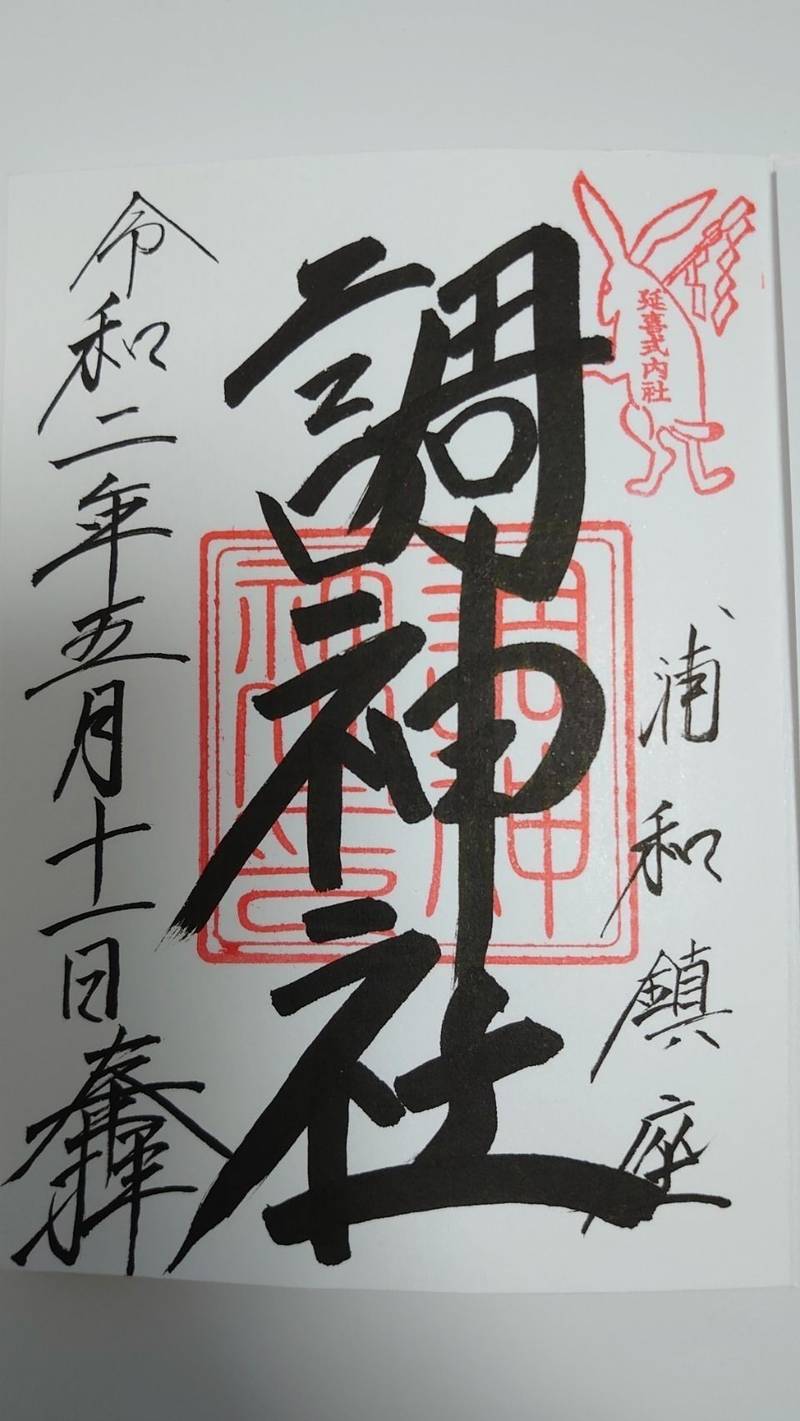 延喜式内社
浦和鎮座
調神社
調神
神社印
令和二年五月十一日奉拝